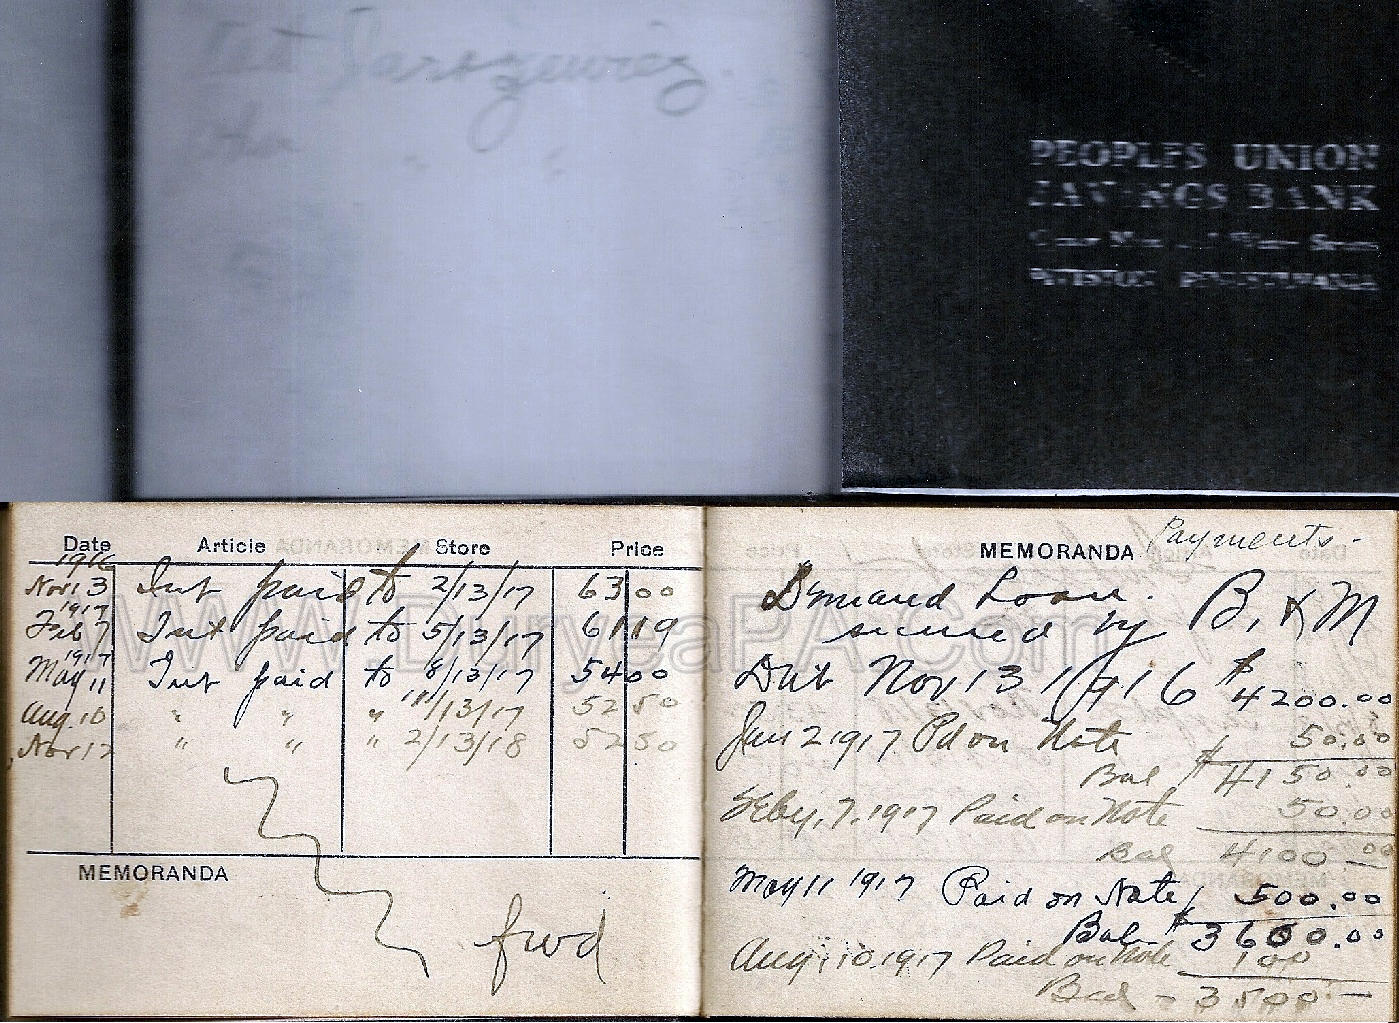 PEOPLES UNION
SAVINGS BANK
PITTSTON PENNSYLVANIA
Date Article Store Price
1916
Nov 13 Int paid to 2/13/17 63 00
1917
Feb 7 Int paid to 5/13/17 61 19
1917
May 11 Int paid to 8/13/17 54 00
Aug. 10 " " " 11/13/17 52 50
Nov 12 " " " 2/13/18 52 50
MEMORANDA
fwd
MEMORANDA Payments -
Demand Loan.
secured by B. & M
Dat Nov 13 1916 $4200.00
Jan 2 1917 Pd on Note 50.00
Bal $4150.00
Feby. 7, 1917 Paid on Note 50.00
Bal 4100 00
May 11 1917 Paid on Note 500.00
Bal $3600.00
Aug. 10. 1917 Paid on Note 100
Bal - 3500 —
WWW.DuryeaPA.Com